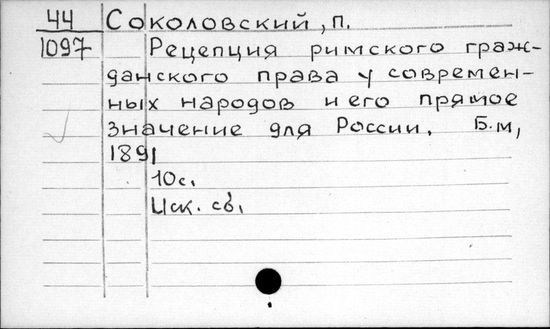 44 Соколовский, П.
1097 Рецепция римского граж-
данского права у современ-
ных народов и его прямое
значение для России. Б.м,
1891
10с.
Иск. св.